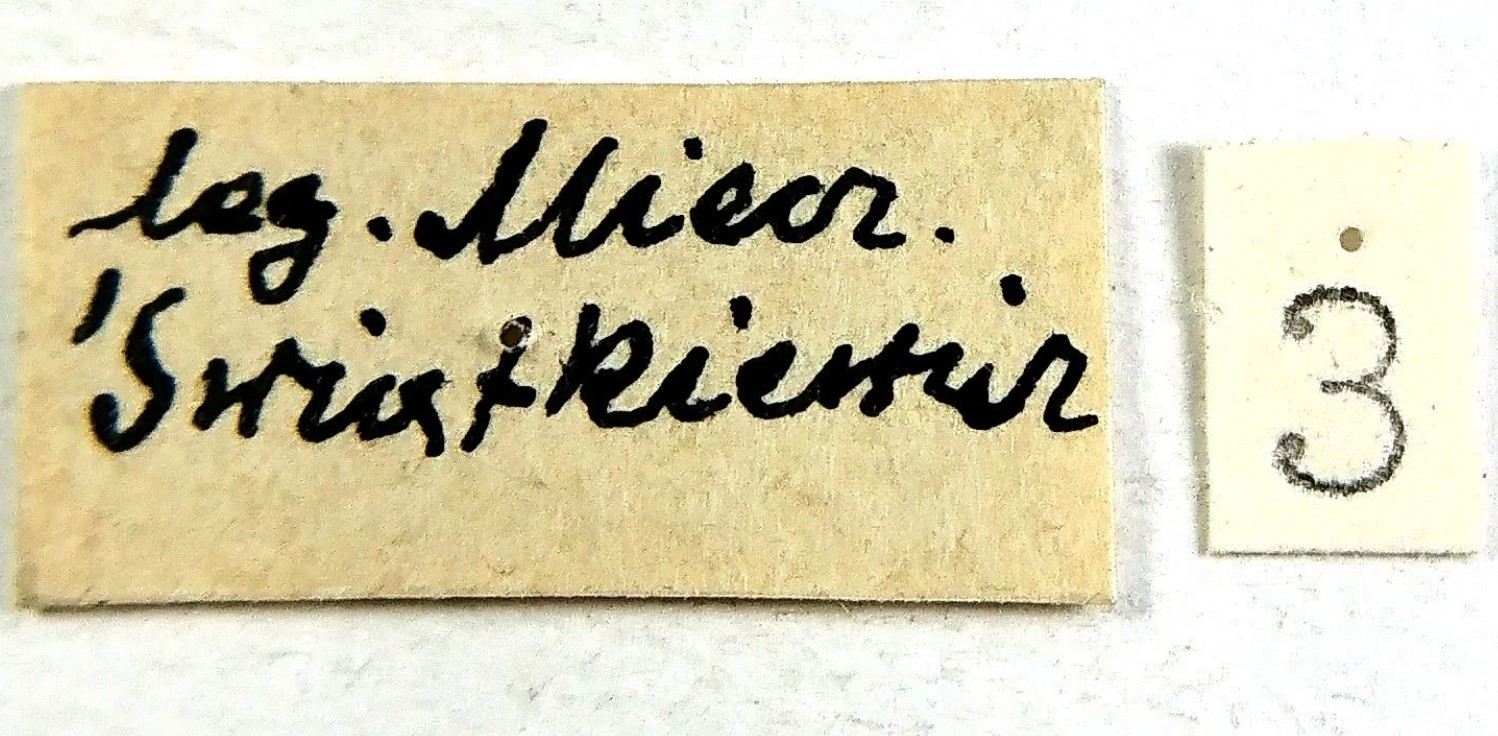 leg. Miecz.
Świątkiewicz
3